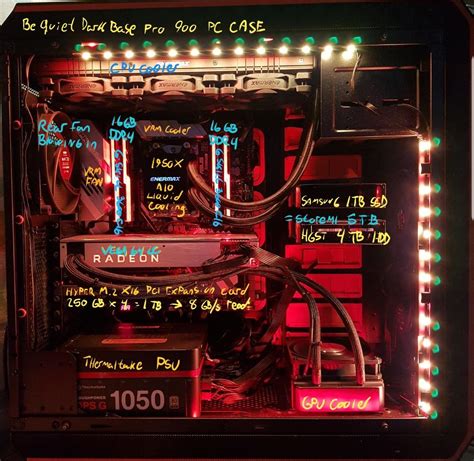 Be Quiet Dark Base Pro 900 PC CASE
CPU Cooler
Rear Fan
Blowing in
16GB
DDR4
VRM Cooler
16GB
DDR4
VRM
FAN
ENERMAX
1950X
AIO
Liquid
Cooling
SAMSUNG 1TB SSD
= StoreMI 5TB
HGST 4TB HDD
VEGA 64 LC
RADEON
HYPER M.2 X16 PCI EXPANSION Card
250 GB x 4 = 1 TB → 8 GB/s read
Thermaltake PSU
1050
GPU Cooler